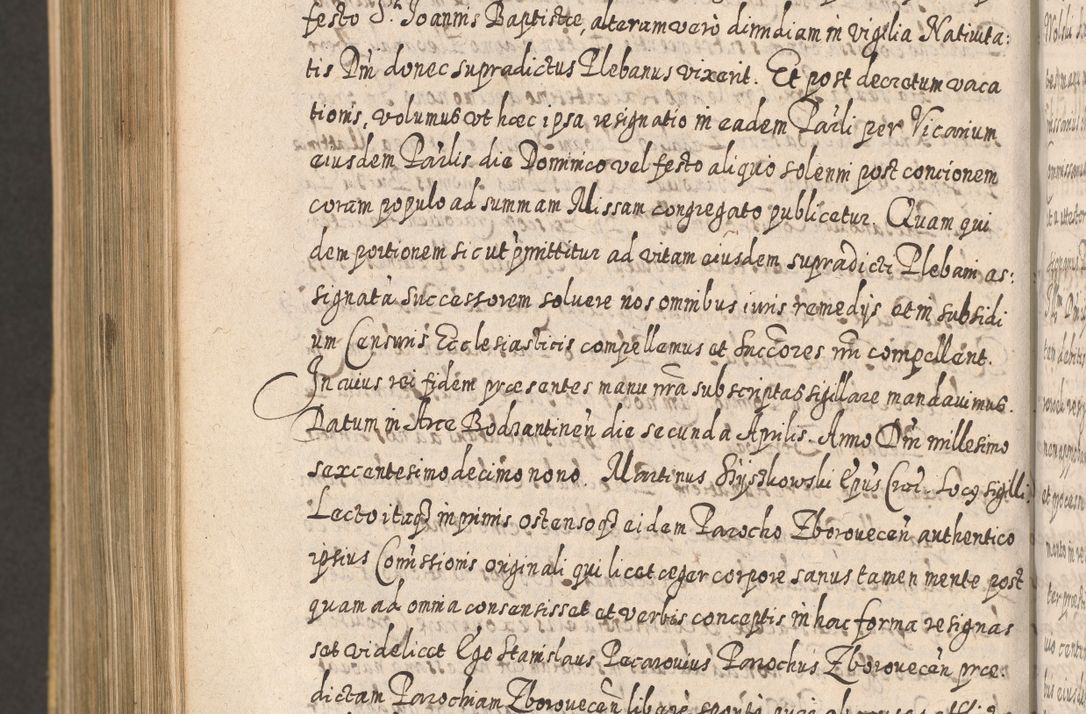 festo S. Joannis Baptistæ, alteram vero dimidiam in vigilia Nativita:
tis Dni donec supradictus Plebanus vixerit. Et post decretum vaca
tionis, volumus vt hæc ipsa resignatio in eadem Parli per Vicarium
eiusdem Parlis die Dominico vel festo aliquo solenni post concionem
coram populo ad summam Missam congregato publicetur. Quam qui
dem portionem sicut pmittitur ad vitam eiusdem supradicti Plebani as:
signatã successorem soluere nos omnibus iuris remedijs et in subsidi
um Censuris Ecclesiasticis compellemus et Succores nri compellent.
In cuius rei fidem præsentes manu nra subscriptas sigillare mandauimus.
Datum in Arce Bodzantinen die secunda Aprilis. Anno Dni millesimo
sexcentesimo decimo nono. Martinus Szyszkowski Epus Crac. Locq sigilli
Lecto itaq inprimis ostensoq eidem Parocho Zborouecen authentico
ipsius Comissionis originali qui licet æger corpore sanus tamen mente post
quam ad omnia consensisset et verbis conceptis in hac forma resignas
set videlicet Ego Stanislaus Pecarouius Parochus Zborouecen præ:
dictam Parochiam Zborouecen libere sponte